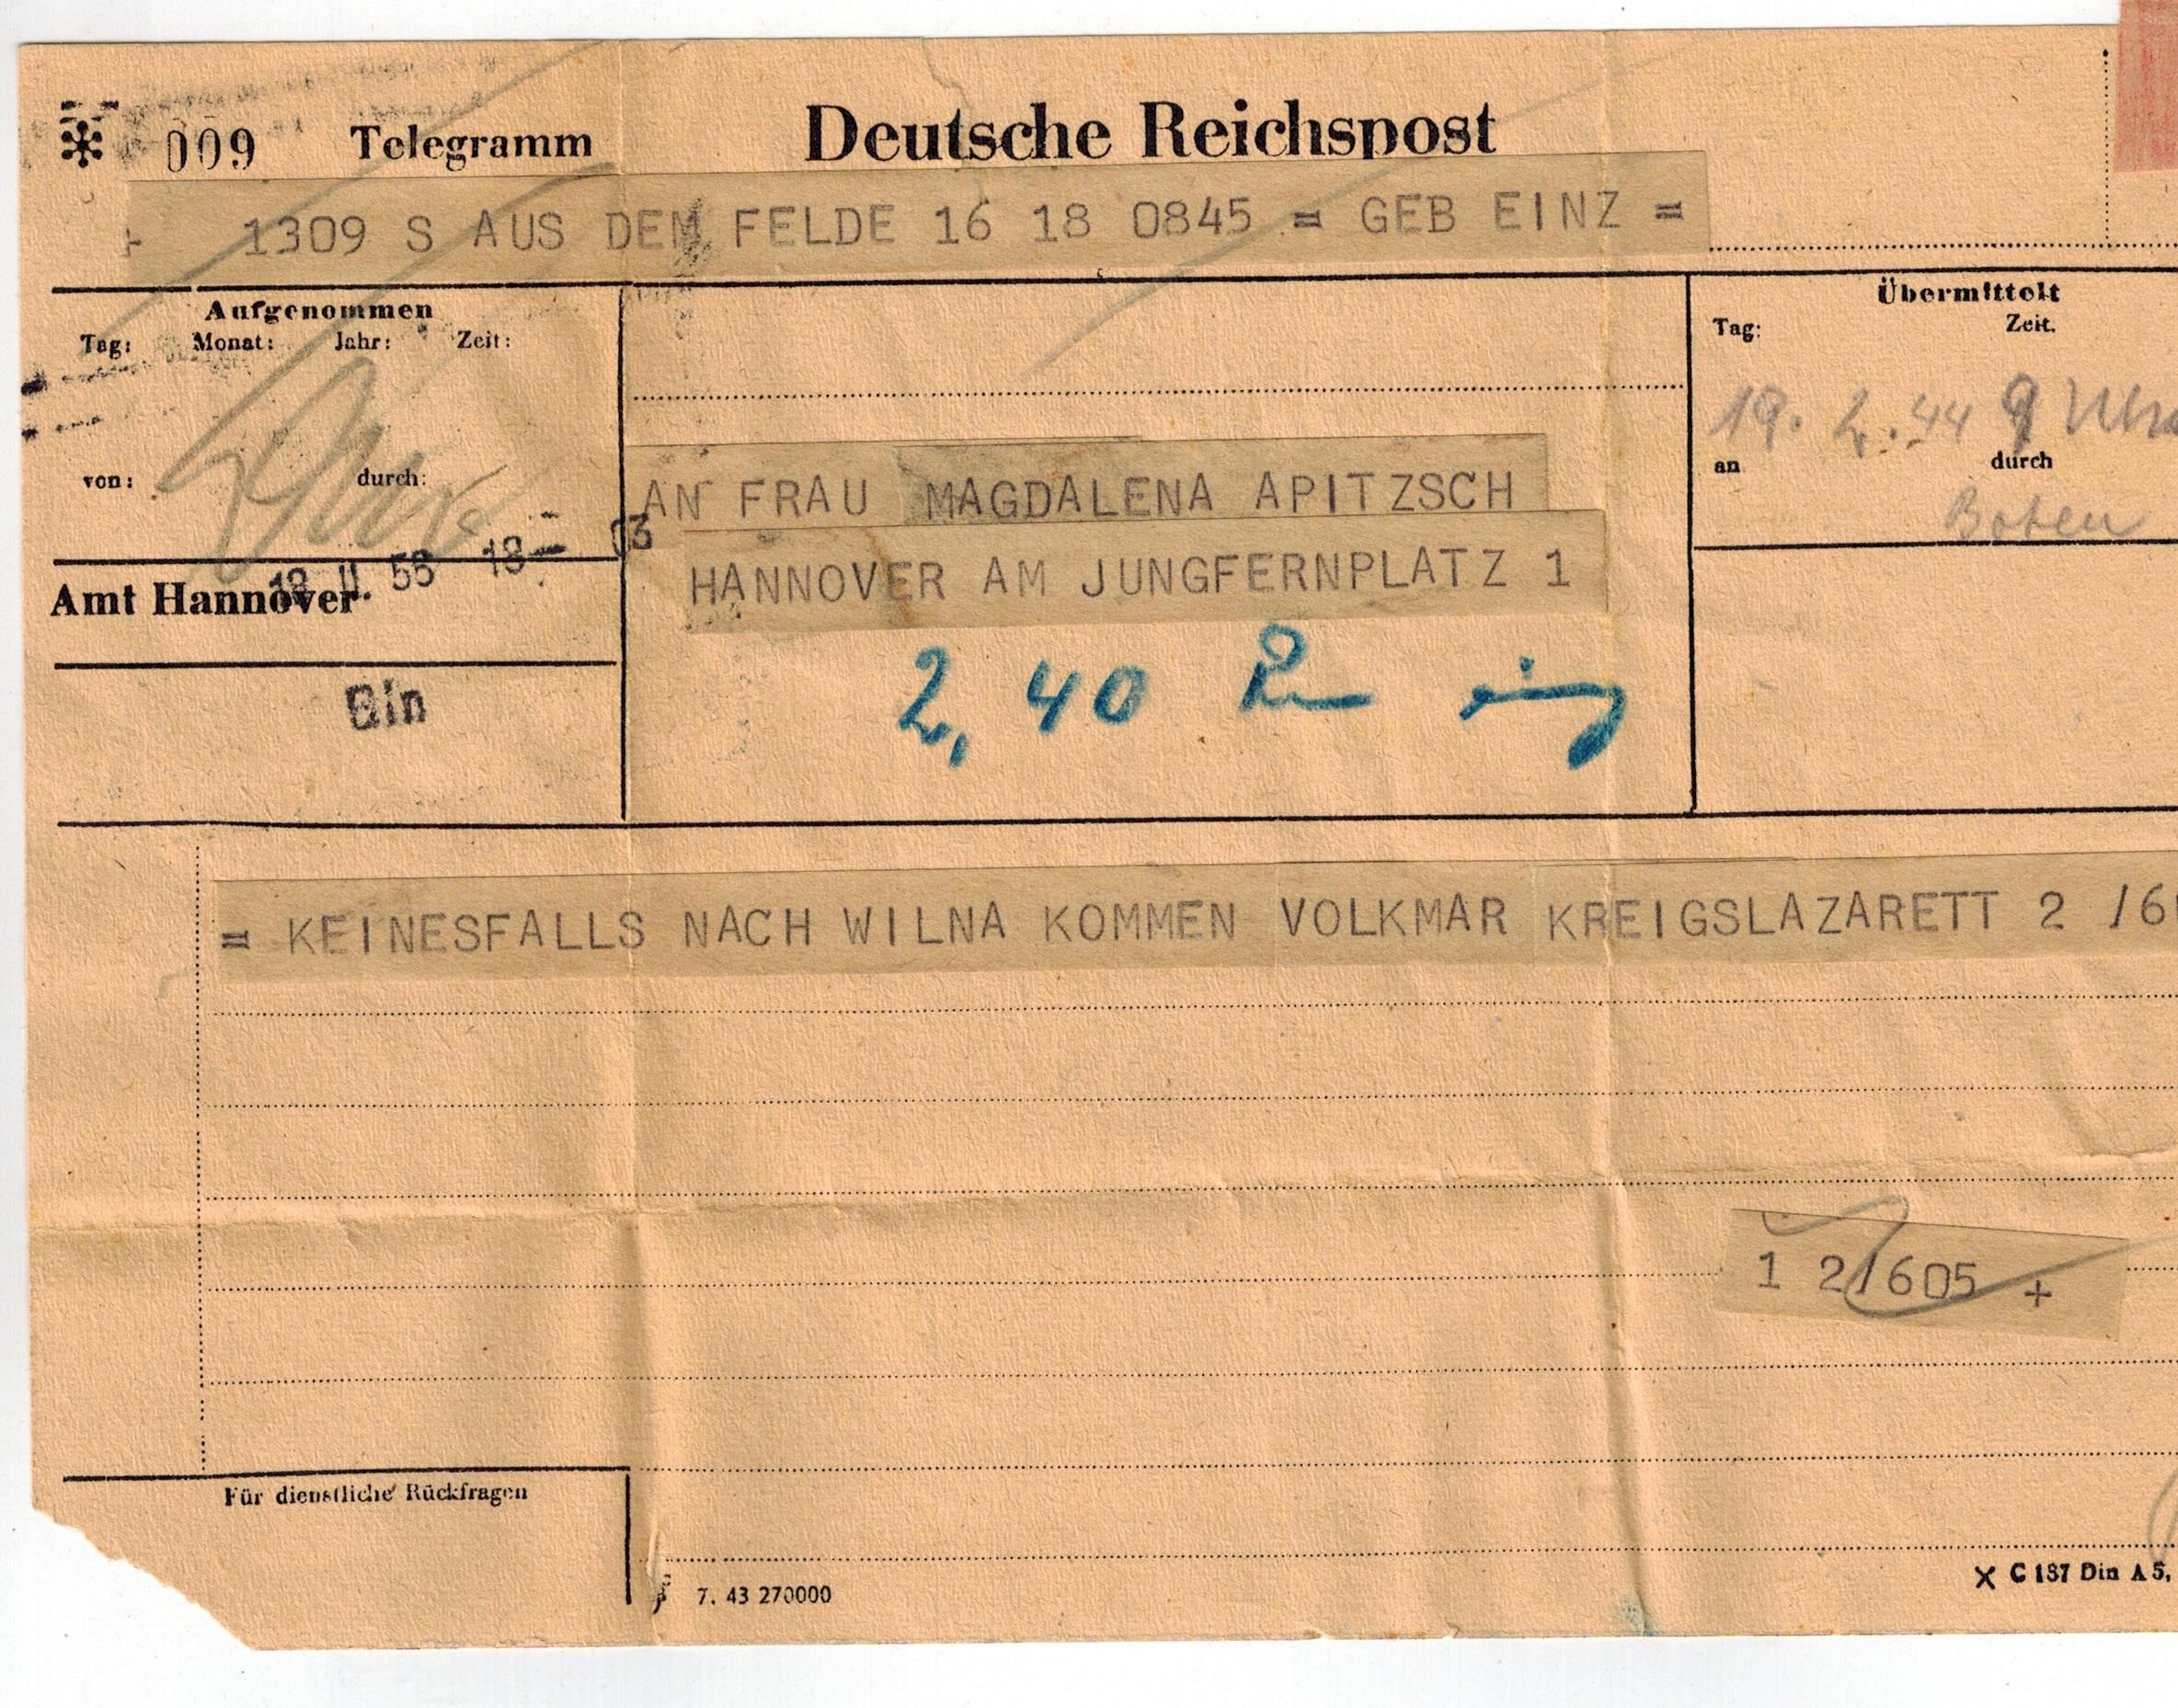 009 Telegramm Deutsche Reichspost
+ 1309 S AUS DEM FELDE 16 18 0845 = GEB EINZ =
Aufgenommen
Tag: Monat: Jahr: Zeit:
von: durch:
Amt Hannover
Ein
Übermittelt
Tag: Zeit.
19. 2. 44 9 Uhr
an durch
Boten
AN FRAU MAGDALENA APITZSCH
03
HANNOVER AM JUNGFERNPLATZ 1
2,40
= KEINESFALLS NACH WILNA KOMMEN VOLKMAR KREIGSLAZARETT 2 /6
1 2/605 +
Für dienstliche Rückfragen
7. 43 270000
X C 187 Din A 5,